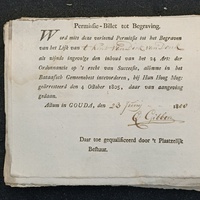 Permissie-Billet tot Begraving.
Werd mits deze verleend Permissie tot het Begraven
van het Lijk van 't
als zijnde ingevolge den inhoud van het 14 Art: der
Ordonnantie op 't recht van Successie, alomme in het
Bataafsch Gemeenebest intevorderen, bij Hun Hoog Mog:
gedecreteerd den 4 October 1805, daar van aangeving
gedaan.
Actum in GOUDA, den 23 180
Daar toe gequalificeerd door 't Plaatzelijk
Bestuur.